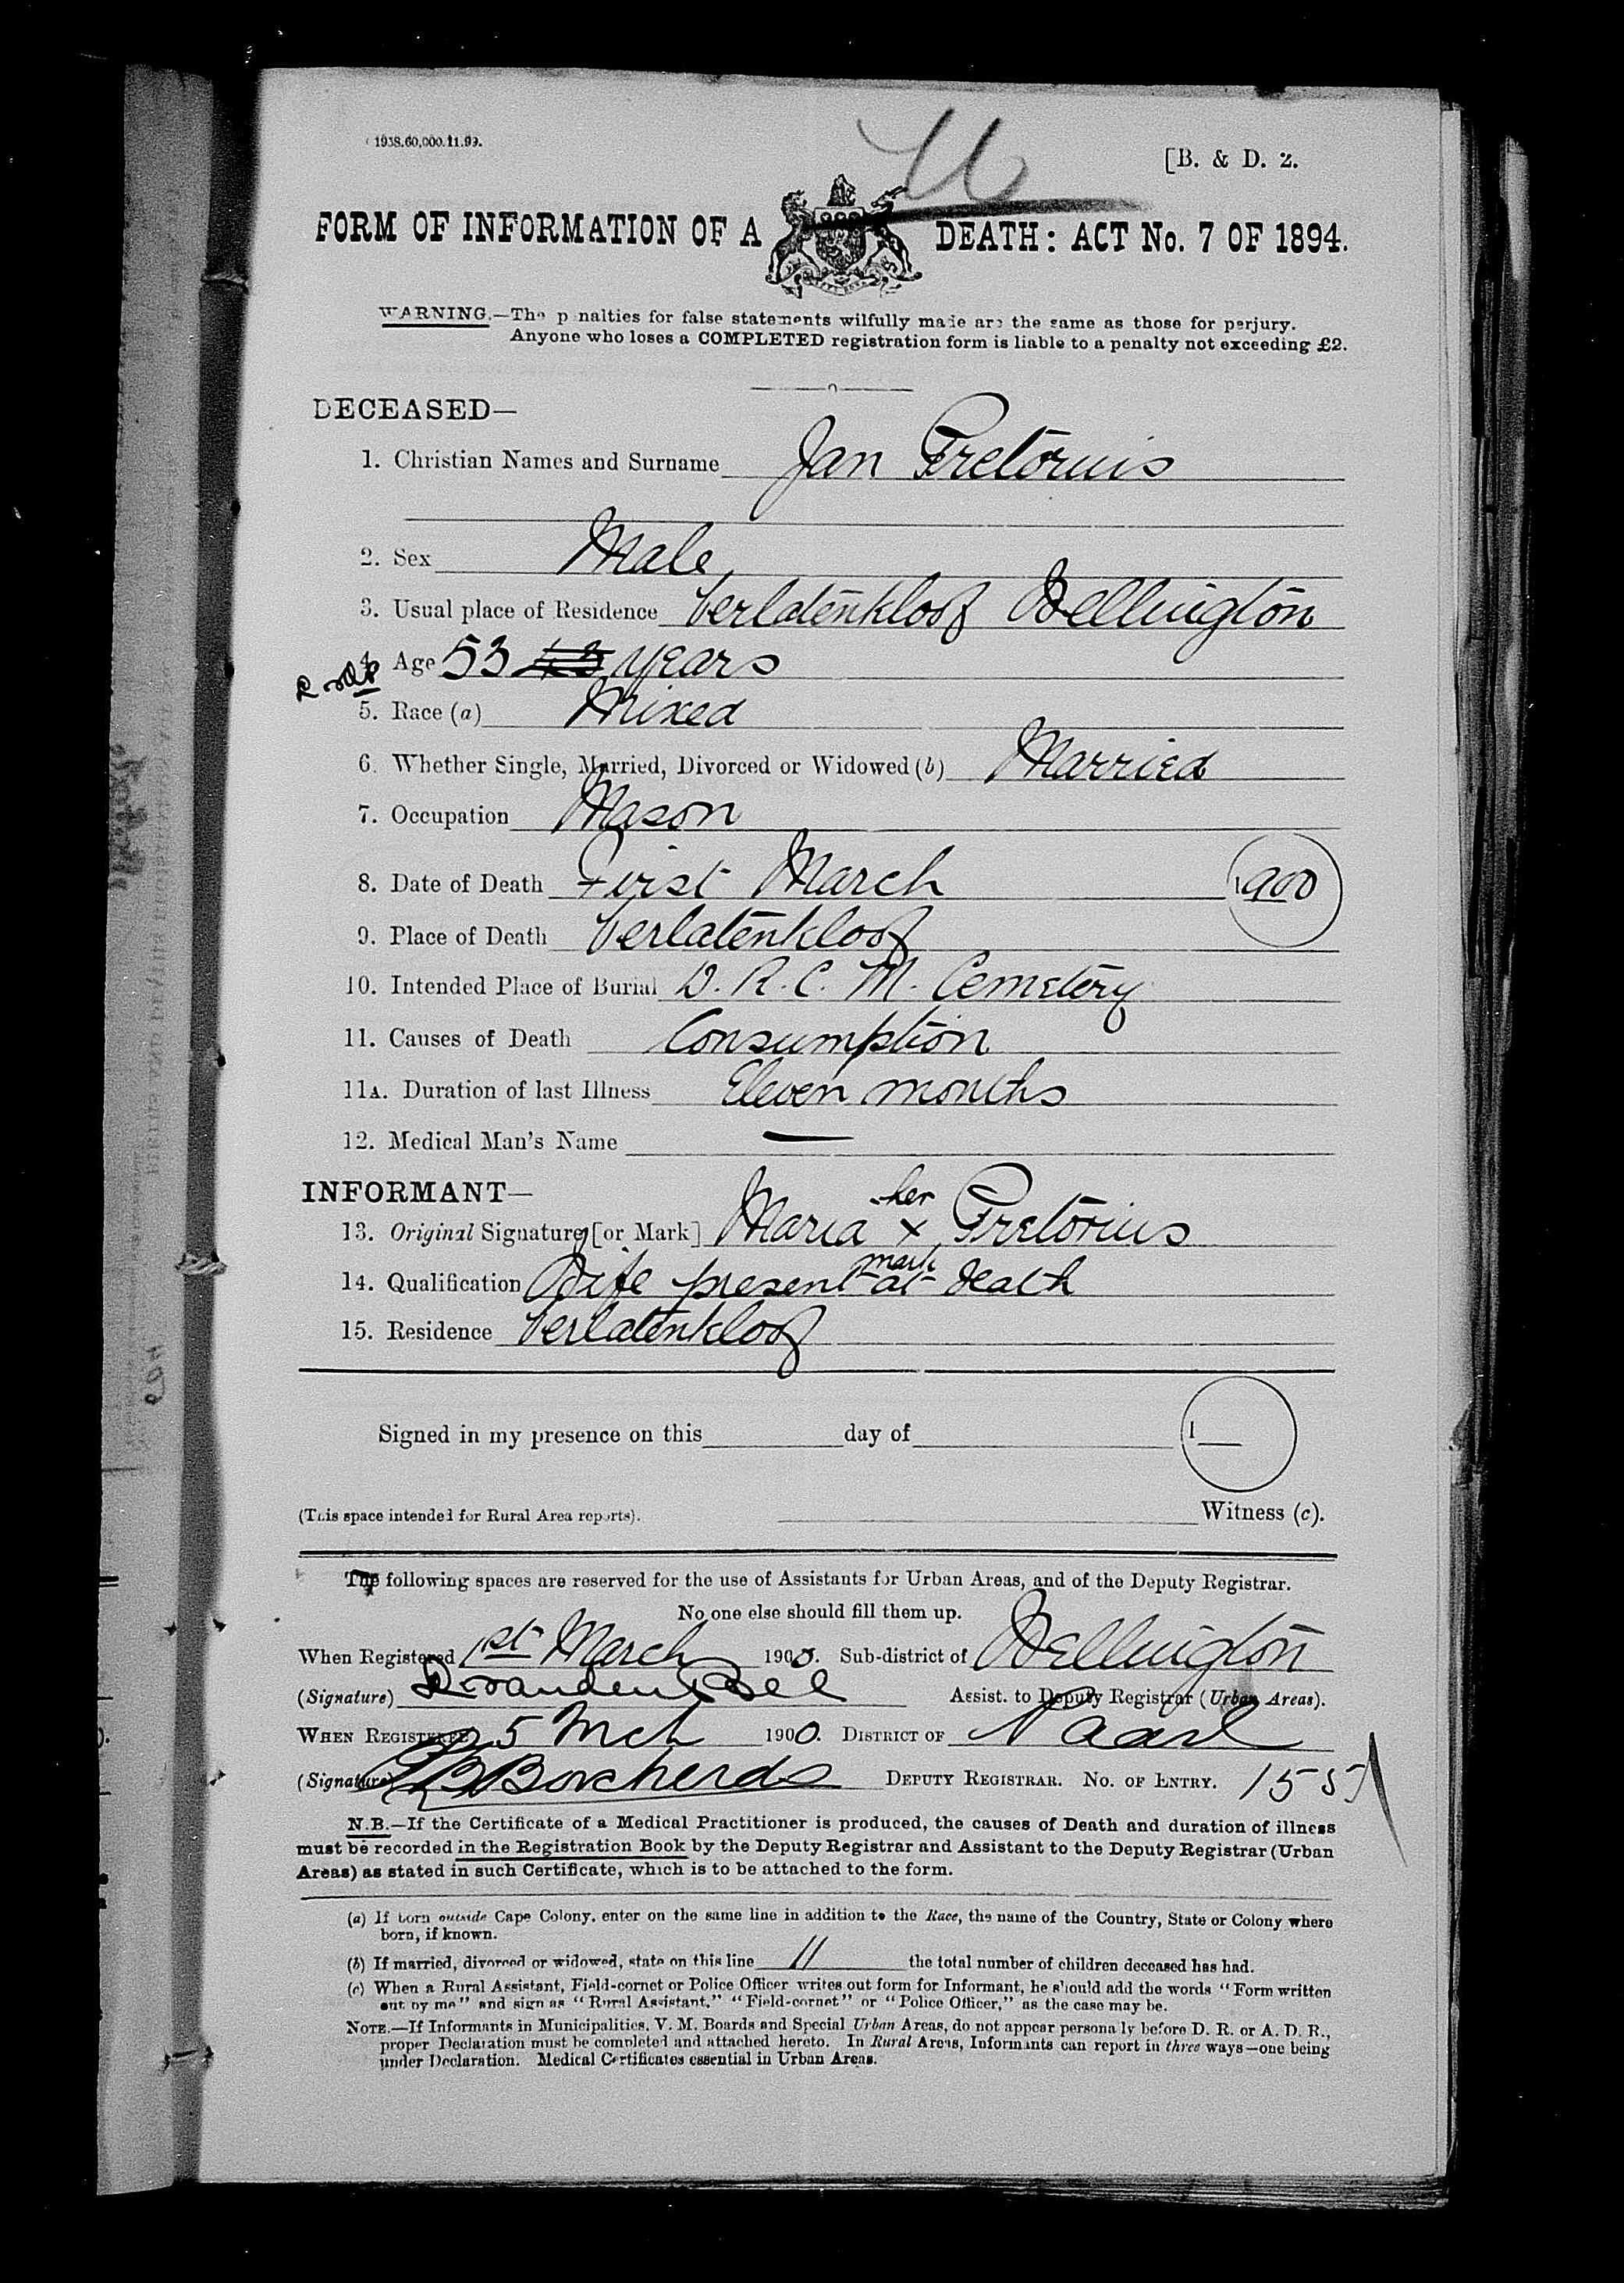 1938.60,000.11.99.
[B. & D. 2.
FORM OF INFORMATION OF A DEATH: ACT No. 7 OF 1894.
WARNING.—The penalties for false statements wilfully made are the same as those for perjury.
Anyone who loses a COMPLETED registration form is liable to a penalty not exceeding £2.
DECEASED—
1. Christian Names and Surname Jan Pretorius
2. Sex Male
3. Usual place of Residence Verlatenkloof Wellington
4. Age 53 43 years
5. Race (a) Mixed
6. Whether Single, Married, Divorced or Widowed (b) Married
7. Occupation Mason
8. Date of Death First March 1900
9. Place of Death Verlatenkloof
10. Intended Place of Burial D. R. C. M. Cemetery
11. Causes of Death Consumption
11A. Duration of last Illness Eleven months
12. Medical Man's Name —
INFORMANT—
13. Original Signature [or Mark] Maria her x mark Pretorius
14. Qualification Wife present at death
15. Residence Verlatenkloof
Signed in my presence on this day of 1
(This space intended for Rural Area reports). Witness (c).
The following spaces are reserved for the use of Assistants for Urban Areas, and of the Deputy Registrar.
No one else should fill them up.
When Registered 1st March 1900. Sub-district of Wellington
(Signature) Assist. to Deputy Registrar (Urban Areas).
WHEN REGISTERED 5 Mch 1900. DISTRICT OF Paarl
(Signature) Borcherds DEPUTY REGISTRAR. No. OF ENTRY. 155
N.B.—If the Certificate of a Medical Practitioner is produced, the causes of Death and duration of illness
must be recorded in the Registration Book by the Deputy Registrar and Assistant to the Deputy Registrar (Urban
Areas) as stated in such Certificate, which is to be attached to the form.
(a) If born outside Cape Colony, enter on the same line in addition to the Race, the name of the Country, State or Colony where
born, if known.
(b) If married, divorced or widowed, state on this line 11 the total number of children deceased has had.
(c) When a Rural Assistant, Field-cornet or Police Officer writes out form for Informant, he should add the words "Form written
out by me" and sign as "Rural Assistant," "Field-cornet" or "Police Officer," as the case may be.
NOTE.—If Informants in Municipalities, V. M. Boards and Special Urban Areas, do not appear personally before D. R. or A. D. R.,
proper Declaration must be completed and attached hereto. In Rural Areas, Informants can report in three ways—one being
under Declaration. Medical Certificates essential in Urban Areas.